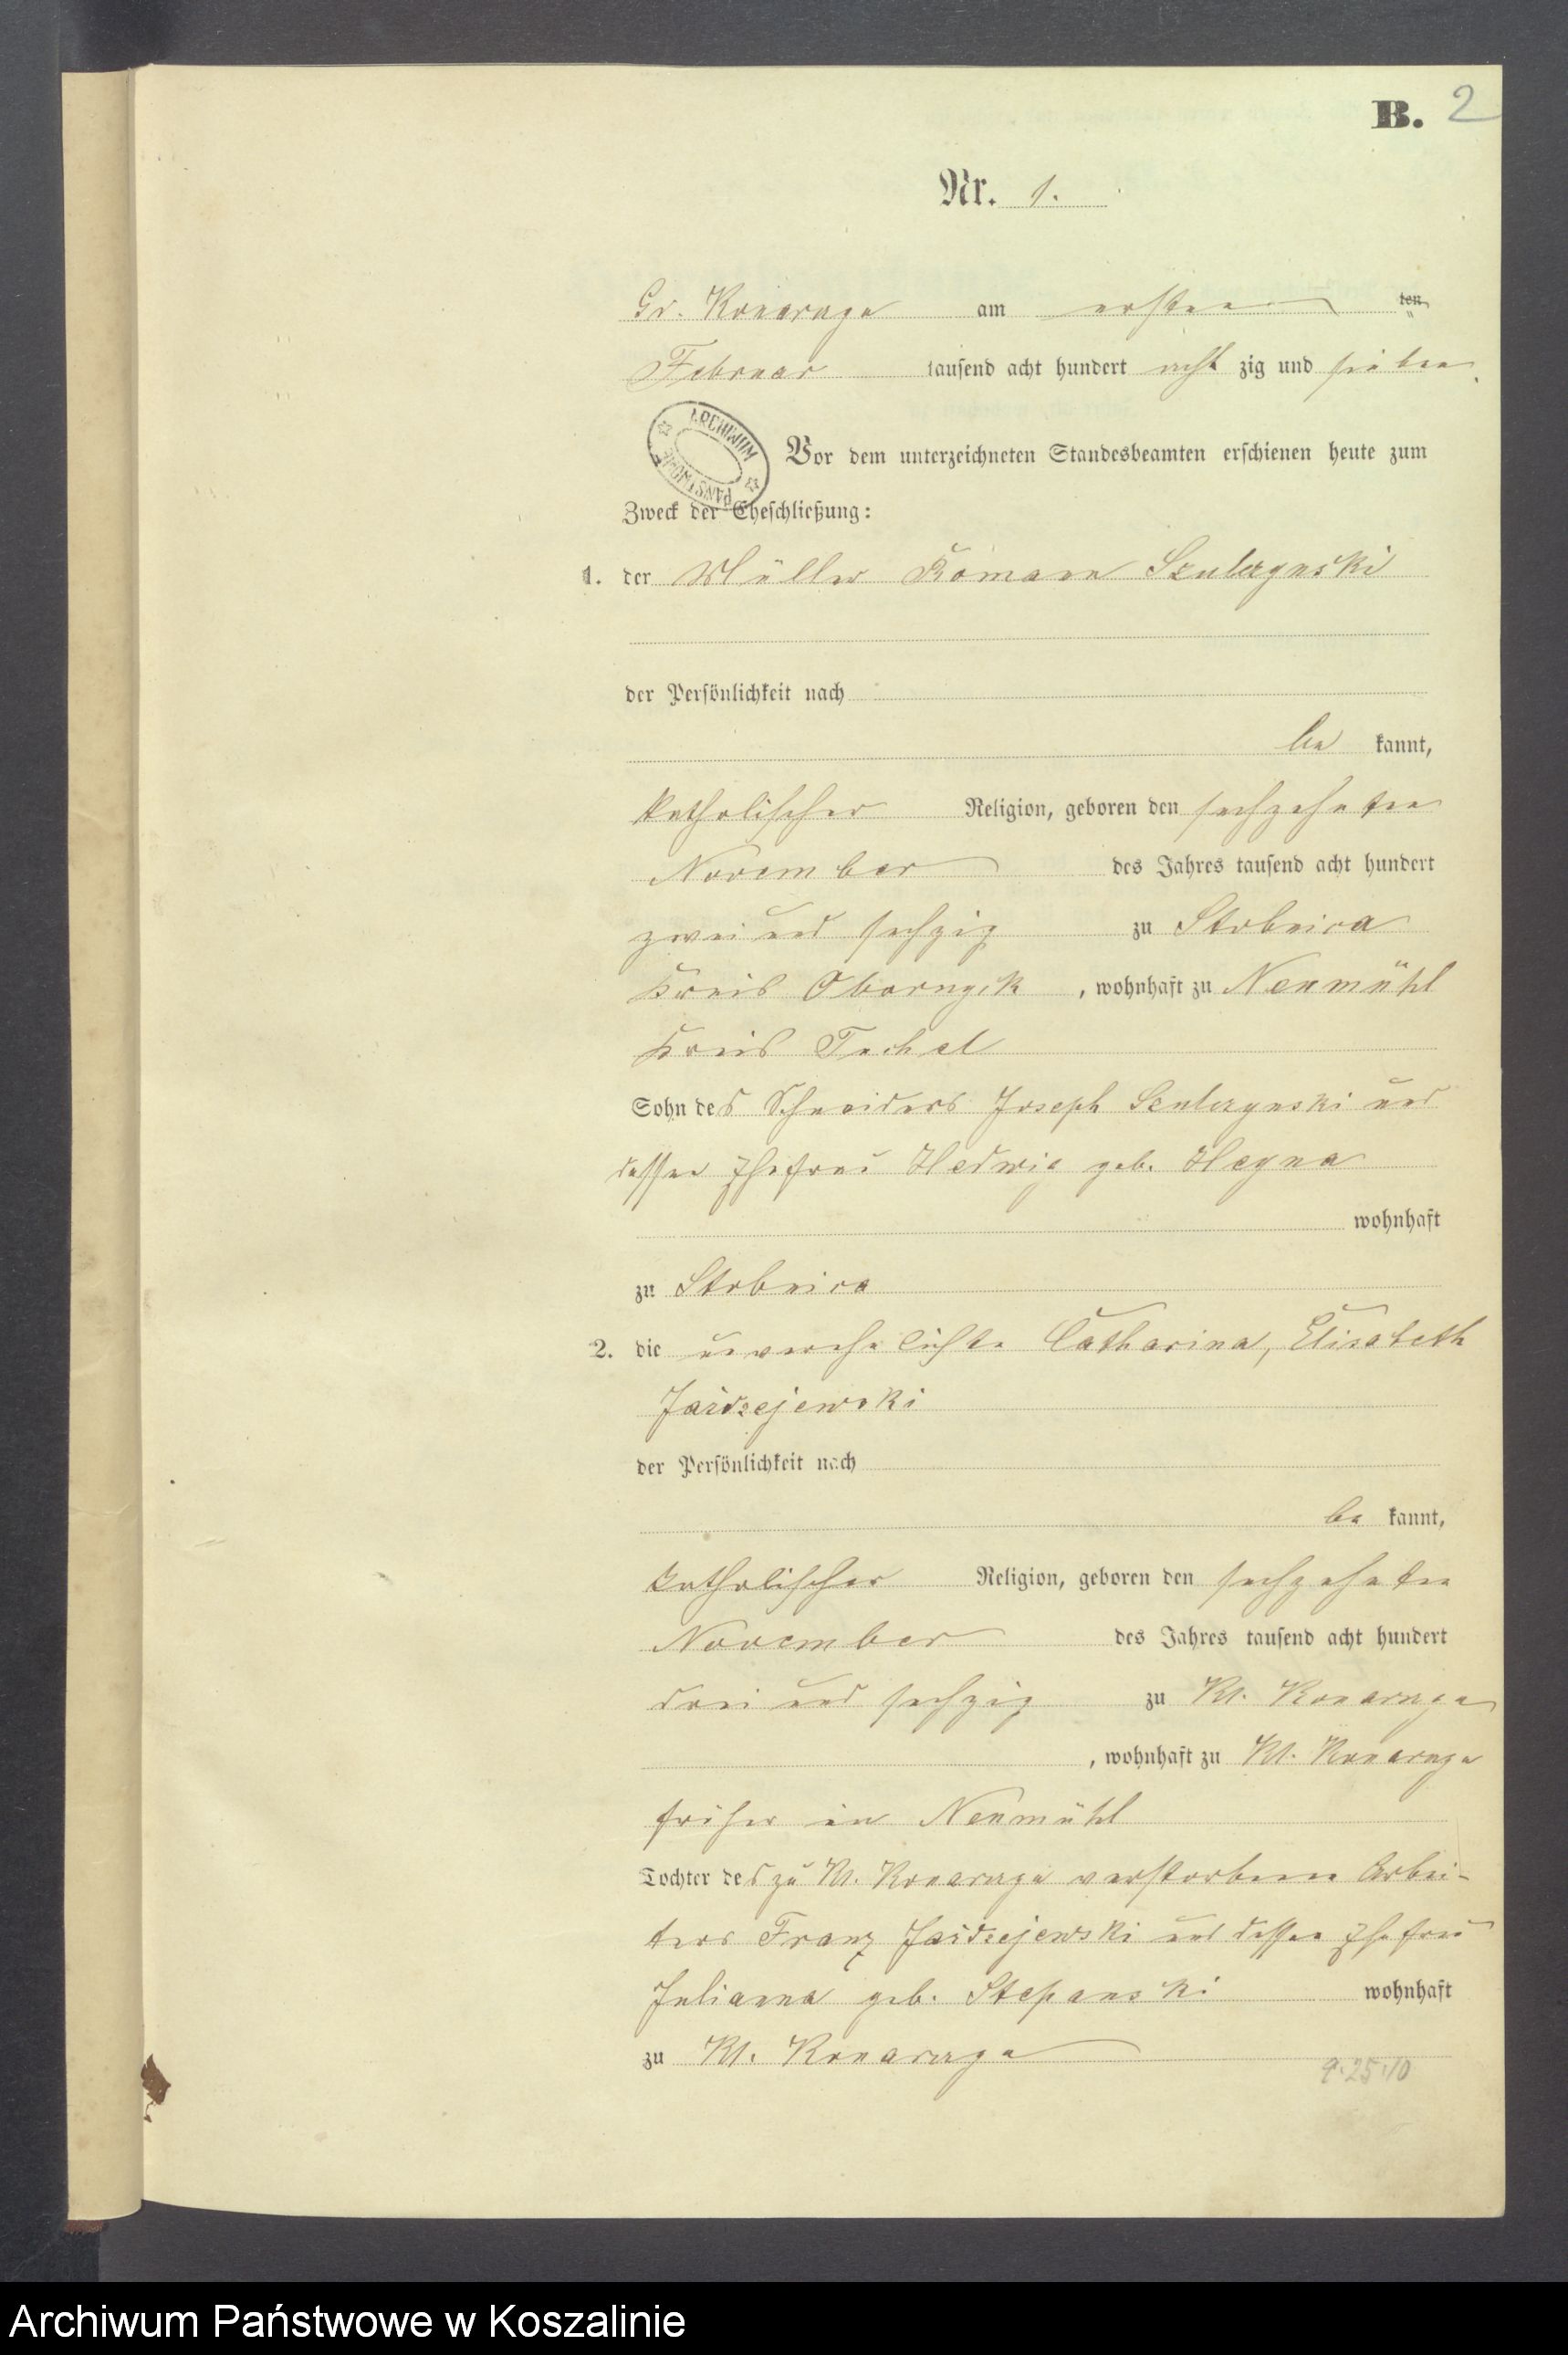 B. 2
Nr. 1.
Gr. Konarczyn am ersten ten
Februar tausend acht hundert acht zig und sieben.
ARCHIWUM PAŃSTWOWE
Vor dem unterzeichneten Standesbeamten erschienen heute zum
Zweck der Eheschließung:
1. der Müller Roman Szulczynski
der Persönlichkeit nach
be kannt,
katholischer Religion, geboren den sechzehnten
November des Jahres tausend acht hundert
zwei und sechzig zu Stobnica
Kreis Obornyck, wohnhaft zu Neumühl
Kreis Tuchel
Sohn des Schneiders Joseph Szulczynski und
dessen Ehefrau Hedwig geb. Heyna
wohnhaft
zu Stobnica
2. die unverehelichte Catharina, Elisabeth
Jaidzejewski
der Persönlichkeit nach
be kannt,
katholischer Religion, geboren den sechzehnten
November des Jahres tausend acht hundert
drei und sechzig zu Kl. Konarczyn
, wohnhaft zu Kl. Konarczyn
früher in Neumühl
Tochter des zu Kl. Konarczyn verstorbenen Arbei-
ters Franz Jaidzejewski und dessen Ehefrau
Julianna geb. Stepanski wohnhaft
zu Kl. Konarczyn
9.25.10
Archiwum Państwowe w Koszalinie